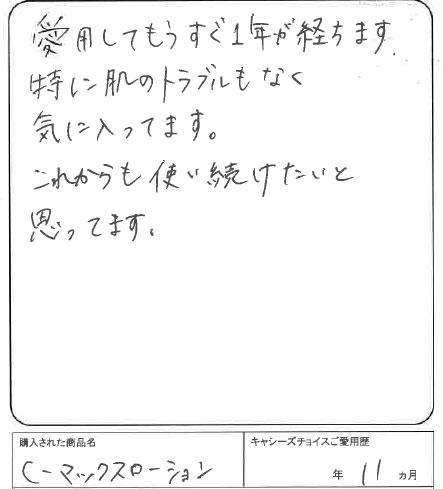 愛用してもうすぐ1年が経ちます.
特に肌のトラブルもなく
気に入ってます。
これからも使い続けたいと
思ってます。
購入された商品名
C-マックスローション
キャシーズチョイスご愛用歴
年 11 ヵ月